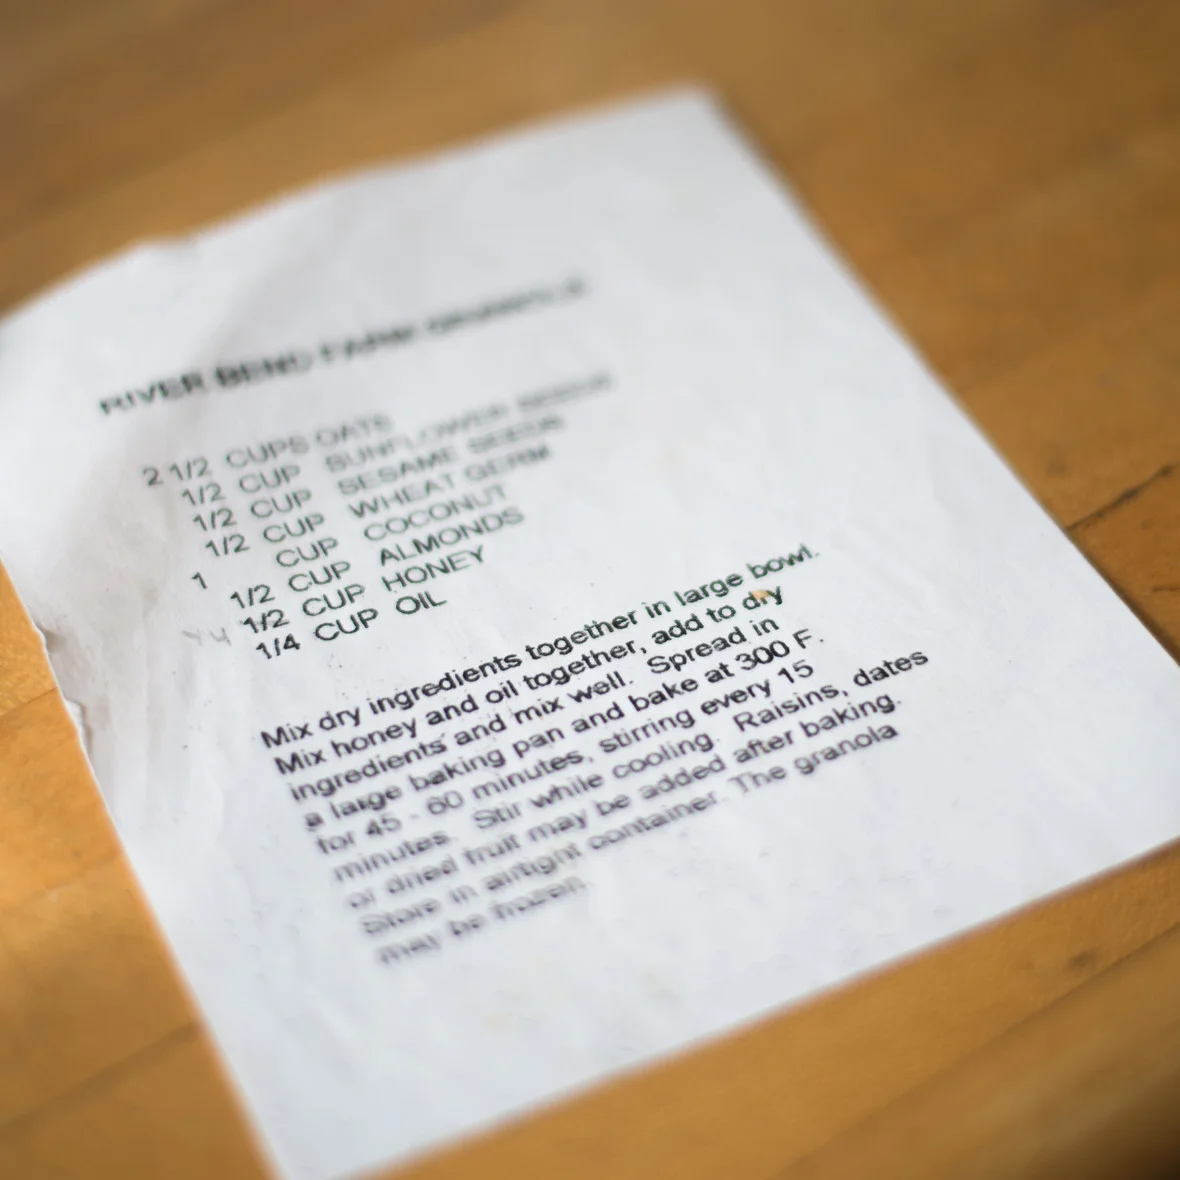 RIVER BEND FARM GRANOLA
2 1/2 CUPS OATS
1/2 CUP SUNFLOWER SEEDS
1/2 CUP SESAME SEEDS
1/2 CUP WHEAT GERM
1 CUP COCONUT
1/2 CUP ALMONDS
1/2 CUP HONEY
1/4 CUP OIL
Mix dry ingredients together in large bowl.
Mix honey and oil together, add to dry
ingredients and mix well. Spread in
a large baking pan and bake at 300 F.
for 45 - 60 minutes, stirring every 15
minutes. Stir while cooling. Raisins, dates
or dried fruit may be added after baking.
Store in airtight container. The granola
may be frozen.